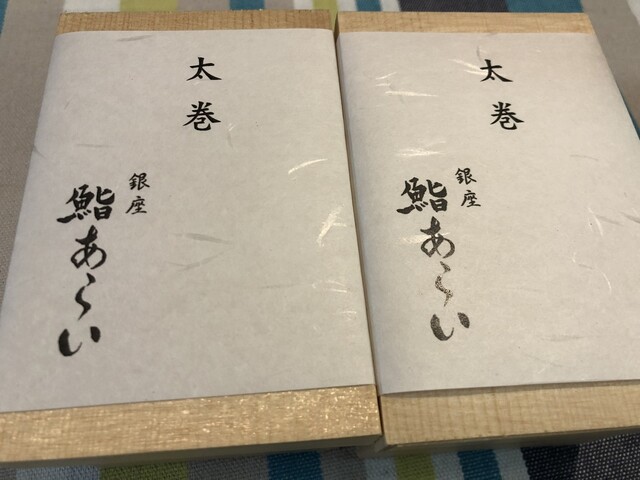 太巻
銀座
鮨あらい
太巻
銀座
鮨あらい